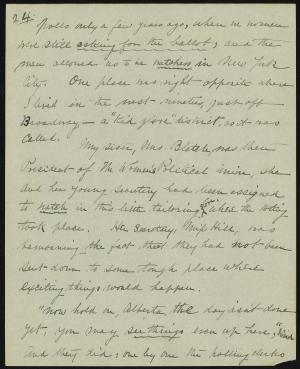 24
polls only a few years ago, when we women
were still asking for the ballot, and the
men allowed us to be watchers in New York
City. One place was right opposite where
I lived in the west-nineties, just off
Broadway – a "kid glove" district, as it was
called.
My sister, Mrs. Blatch, was then
President of The Women's Political Union, she
and her young Secretary had been assigned
to watch in this little tailoring while the voting
took place. Her Secretary, Miss Hill, was
bemoaning the fact that they had not been
sent down to some tough place where
exciting things would happen.
"Now hold on, Alberta, the day isn't done
yet, you may see things even up here,"
And they did: one by one the polling clerks